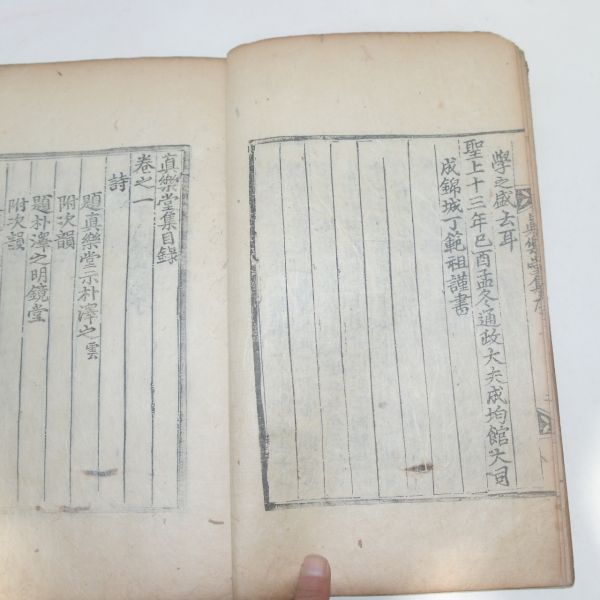 學之盛云耳
聖上十三年己酉孟冬通政大夫成均館大司
成錦城丁範祖謹書
眞樂堂集目錄
卷之一
詩
題眞樂堂示朴澤之雲
附次韻
題朴澤之明鏡堂
附次韻